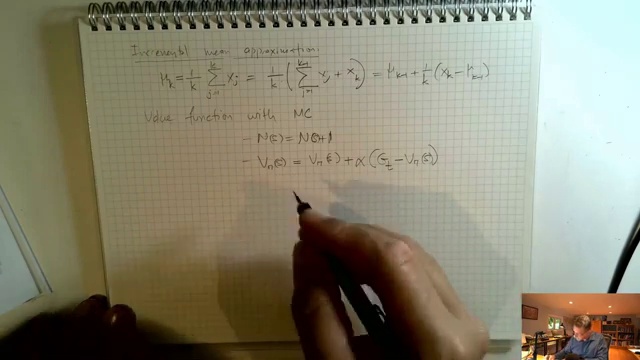 Incremental mean approximation:
μ_k = 1/k ∑_{j=1}^{k} x_j = 1/k ( ∑_{j=1}^{k-1} x_j + x_k ) = μ_{k-1} + 1/k (x_k − μ_{k-1})
Value function with MC
- N(s) = N(s)+1
- V_π(s) = V_π(s) + α (G_t − V_π(s))